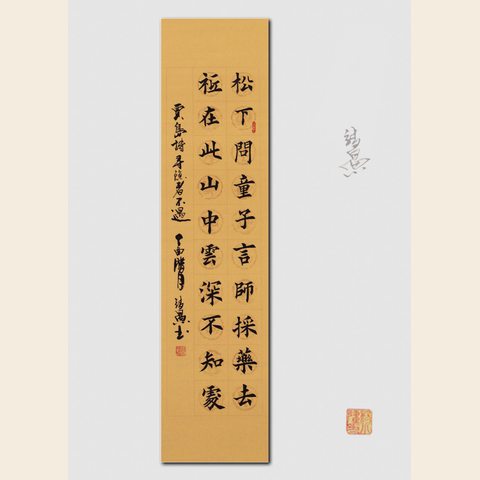 松下問童子言師採藥去
祗在此山中雲深不知處
賈島詩尋隱者不遇 丁酉臘月 書